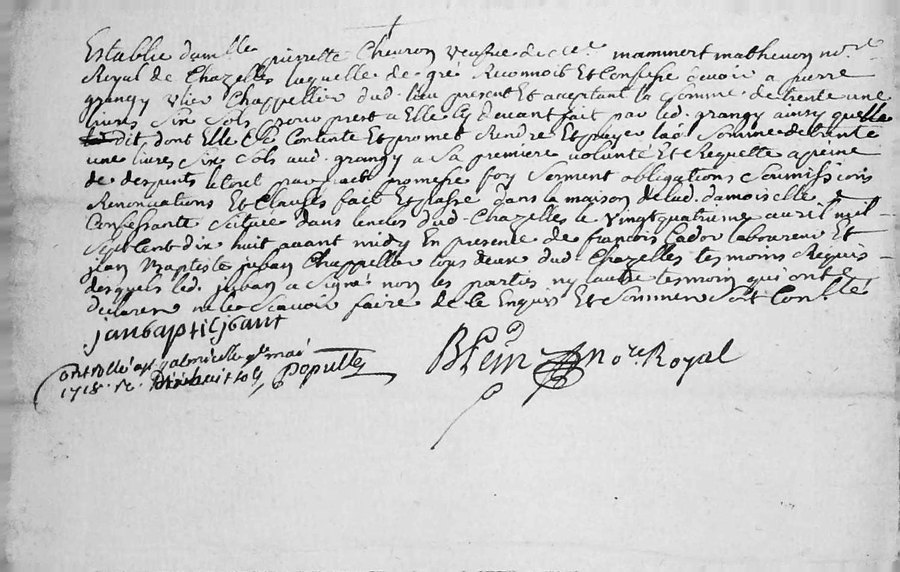 Establie damlle pierrette Chevron veufve de Me mammert mathevon nore
Royal de Chazelles laquelle de gre Reconnoit Et Confesse devoir a pierre
grangy Chappellier dud. lieu present Et acceptant la somme de trente une
livres six sols pour prest a Elle cy devant fait par led. grangy ainsy quelle
dit dont Elle Est Contente Et promet Rendre Et payer lad somme de trente
une livres six sols aud. grangy a sa premiere volonté Et Requette a peine
de despents le tout par foy serment obligations soumissions
Renonciations Et Clauses fait Et passé dans la maison de lad. damoiselle
Confessante scituée dans lenclos dud. Chazelles le vingtquatrieme avril mil
sept cent dix huit avant midy En presence de françois Cador laboureur Et
jean Baptiste juban Chappellier tous deux dud. Chazelles tesmoins Requis
desquels led. juban a signé non les parties ny lautre tesmoin qui ont
declarer ne le sçavoir faire de ce Enquis Et sommer soit Conllé
janbaptit juant
Controllé a st galmier le mai
1718. Re. Dixhuit sols Populle
Blein Nore. Royal